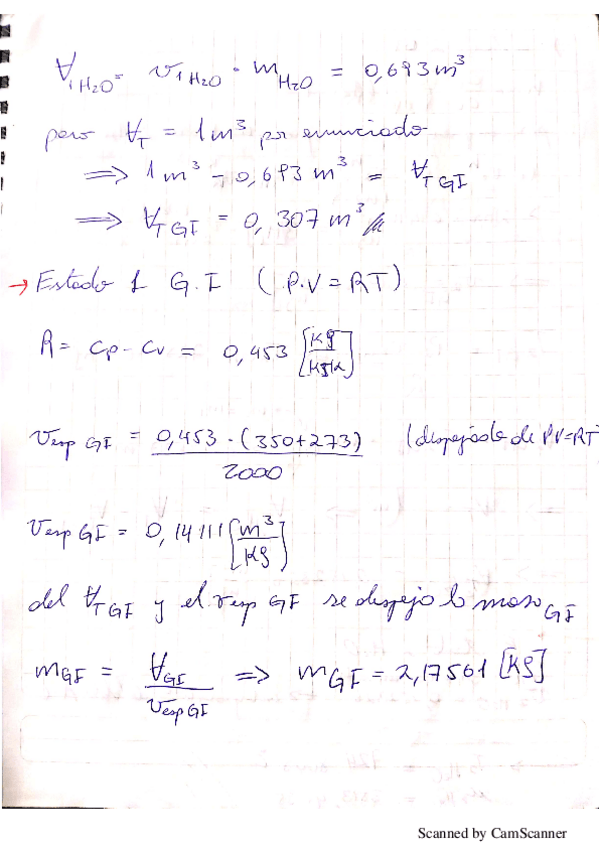 ∀₁H₂O = v₁H₂O · mH₂O = 0,693 m³
pero ∀T = 1 m³ por enunciado
⟹ 1 m³ - 0,693 m³ = ∀T GI
⟹ ∀T GI = 0,307 m³
→ Estado 1 G.I (P.V = RT)
R = Cp - Cv = 0,453 [KJ/KgK]
Vesp GI = 0,453 · (350+273) / 2000 (despejada de PV=RT)
Vesp GI = 0,14111 [m³/Kg]
del ∀T GI y el vesp GI se despejo la masa GI
mGI = ∀GI / Vesp GI => mGI = 2,17561 [Kg]
Scanned by CamScanner